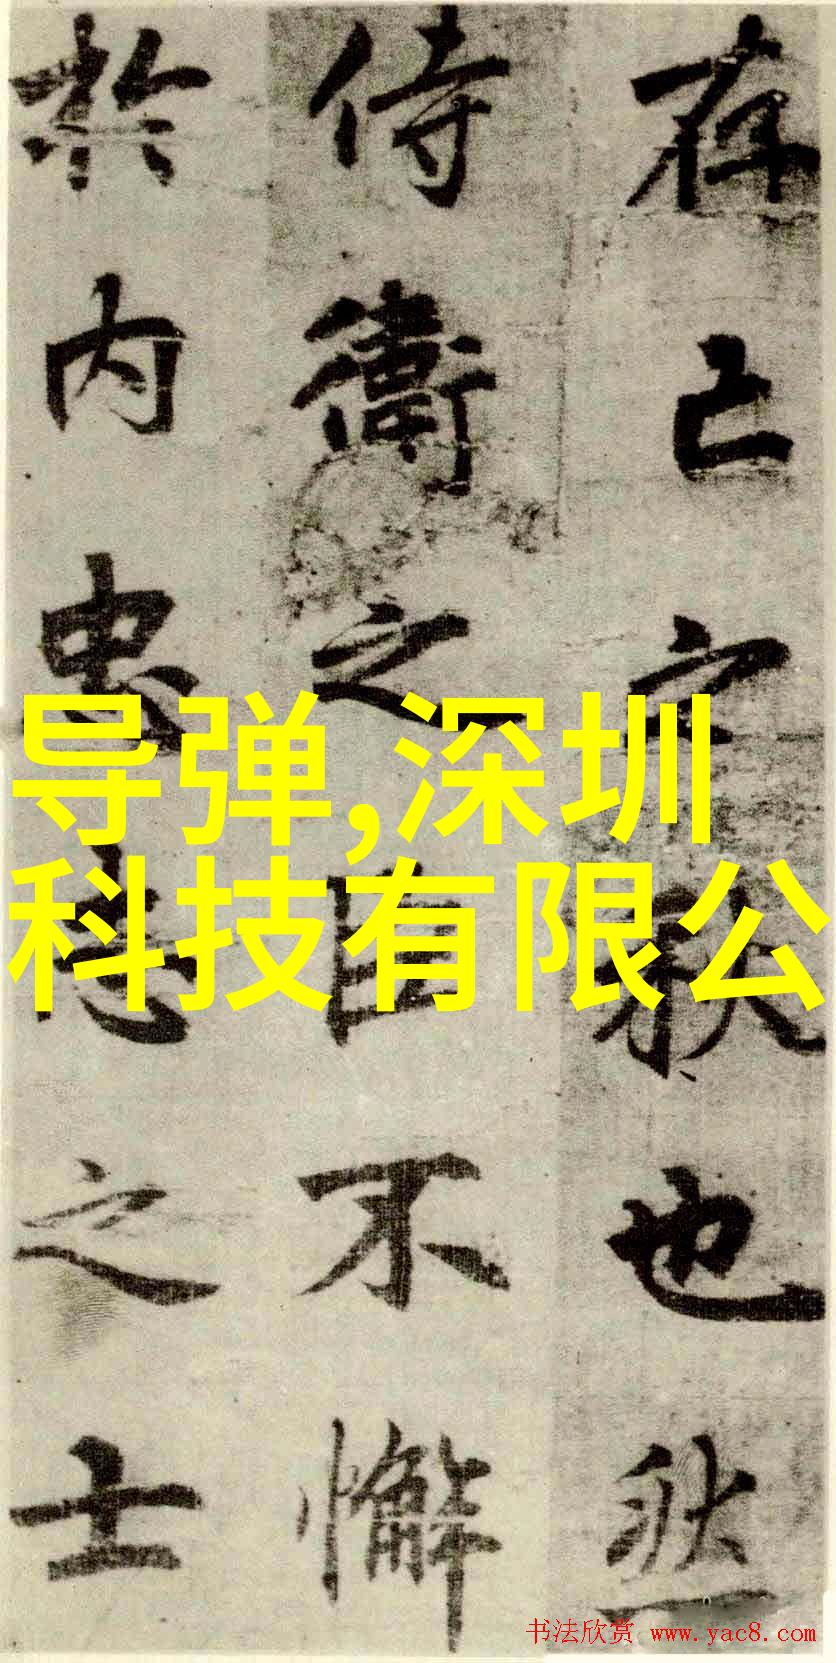 存亡之秋也然
侍衛之臣不懈
於内忠志之士
导弹,深圳
科技有限公
书法欣赏 www.yac8.com